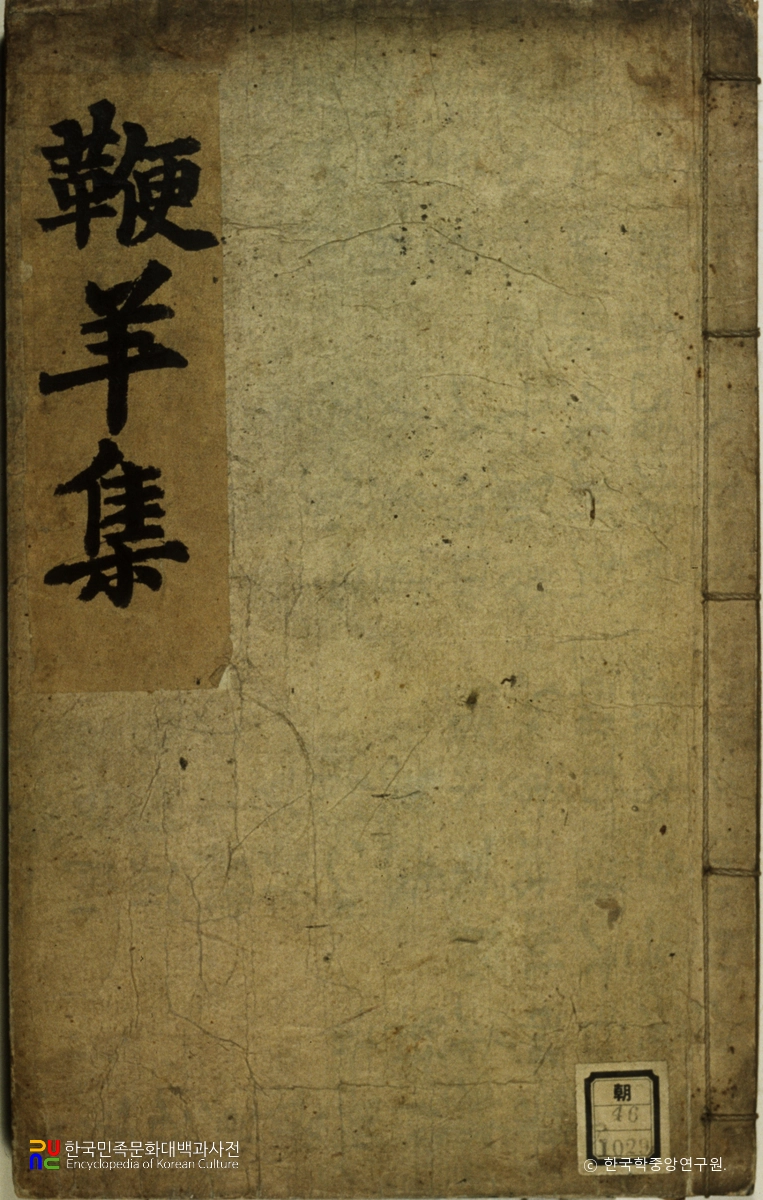 鞭羊集
朝
46
1029
한국민족문화대백과사전
Encyclopedia of Korean Culture
© 한국학중앙연구원.